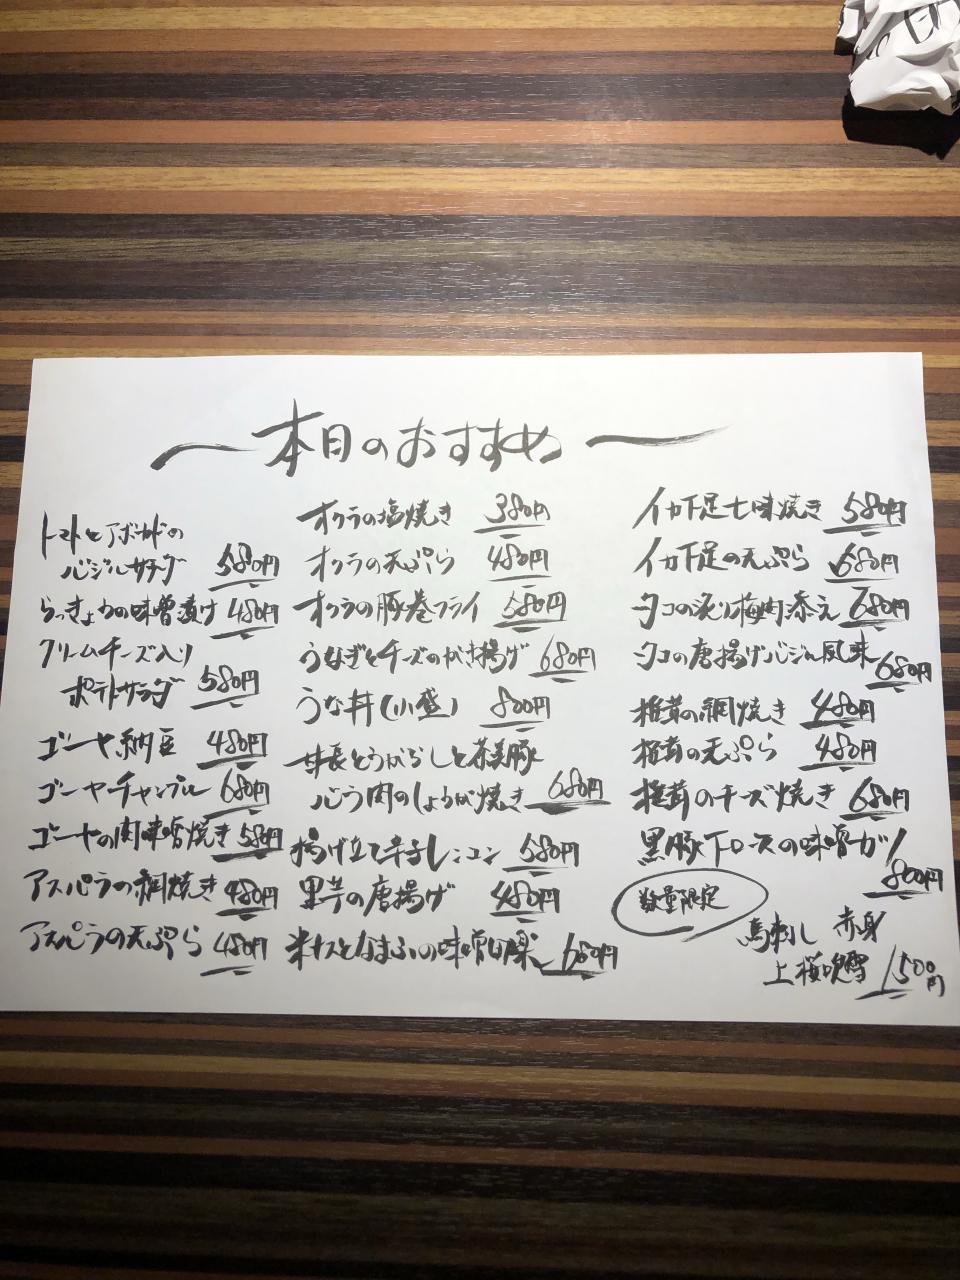 〜本日のおすすめ〜
トマトとアボカドの
バジルサラダ 580円
らっきょうの味噌漬け 480円
クリームチーズ入り
ポテトサラダ 580円
ゴーヤ納豆 480円
ゴーヤーチャンプルー 680円
ゴーヤの肉味噌焼き 580円
アスパラの網焼き 480円
アスパラの天ぷら 480円
オクラの塩焼き 380円
オクラの天ぷら 480円
オクラの豚巻フライ 580円
うなぎとチーズのかき揚げ 680円
うな丼(小盛) 800円
甘長とうがらしと茶美豚
バラ肉のしょうが焼き 680円
揚げ立て辛子レンコン 580円
里芋の唐揚げ 480円
米ナスとなまふの味噌田楽 680円
イカ下足七味焼き 580円
イカ下足の天ぷら 680円
タコの湯引梅肉添え 680円
タコの唐揚げバジル風味 680円
椎茸の網焼き 480円
椎茸の天ぷら 480円
椎茸のチーズ焼き 680円
黒豚下ロースの味噌カツ
800円
数量限定
馬刺し 赤身
上桜吹雪 1500円